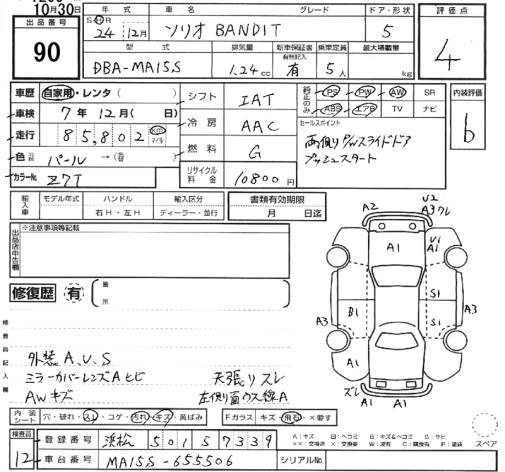 10月30日
出品番号
90
年式 車名 グレード ドア・形状
S・H・R 24年12月 ソリオ BANDIT 5
型式 排気量 新車保証書 有無記入 乗車定員 最大積載量
DBA-MA15S 1.24cc 有 5人 kg
評価点
4
内装評価
b
車歴 自家用・レンタ( )
車検 7年12月( 日)
走行 85,802 km マイル
色 パール → (
カラーNo. Z7T
シフト IAT
冷房 AAC
燃料 G
リサイクル料金 10800円
純正のみ PS PW AW SR
ABS エアB TV ナビ
セールスポイント
両側りP/Wスライドドア
プッシュスタート
輸入車 モデル年式 ハンドル 輸入区分
右H・左H ディーラー・並行
書類有効期限
月 日迄
出品店申告欄
※注意事項等記載
修復歴 有 箇所
検査員記入欄
外装 A,U,S
ミラーカバーレンズAヒビ
AWキズ
天張りスレ
左側面ウス線A
A2 U2
A3ワレ
A1 U1
A1
B1 S1
S1
A3 A3
A1 A1
ズレ A1 A1
内装シート 穴・破れ・スレ・コゲ・汚れ・キズ・黄ばみ
Fガラス キズ・飛石・×要す
検査員
12
登録番号 浜松 501 5 7339
車台番号 MA15S-655506
シリアルNo.
A:キズ U:ヘコミ B:キズ&ヘコミ S:サビ
××:交換済 ×:要交換 W:波有 C:腐食有 P:塗装
スペア